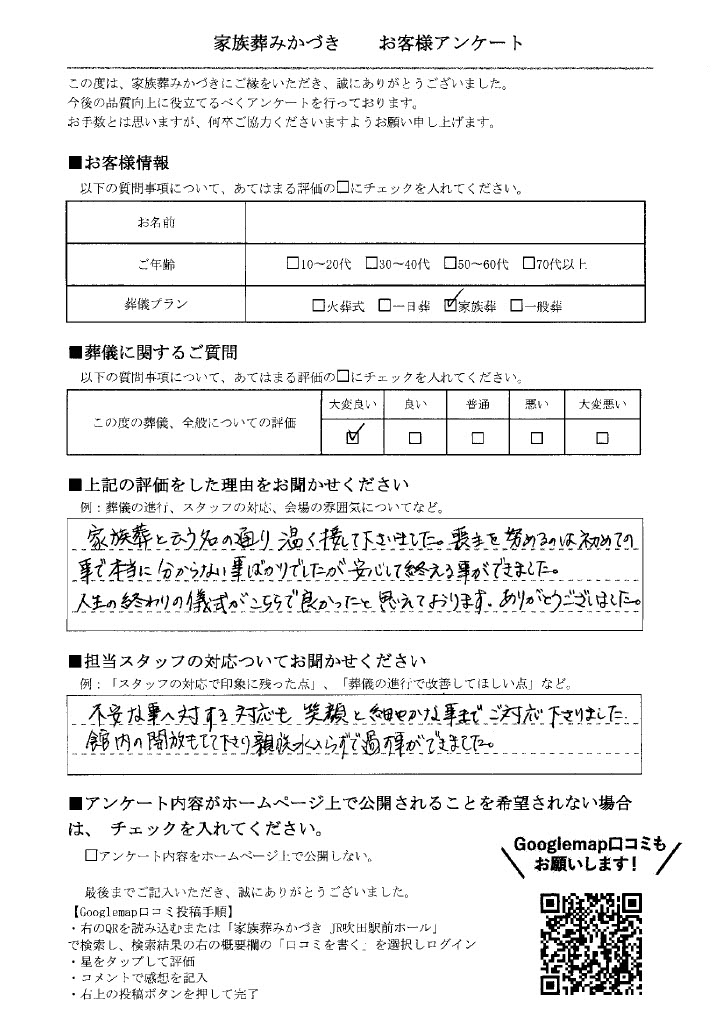 家族葬みかづき　　お客様アンケート
この度は、家族葬みかづきにご縁をいただき、誠にありがとうございました。
今後の品質向上に役立てるべくアンケートを行っております。
お手数とは思いますが、何卒ご協力くださいますようお願い申し上げます。
■お客様情報
以下の質問事項について、あてはまる評価の□にチェックを入れてください。
お名前
ご年齢　□10～20代　□30～40代　□50～60代　□70代以上
葬儀プラン　□火葬式　□一日葬　☑家族葬　□一般葬
■葬儀に関するご質問
以下の質問事項について、あてはまる評価の□にチェックを入れてください。
大変良い　良い　普通　悪い　大変悪い
この度の葬儀、全般についての評価　☑　□　□　□　□
■上記の評価をした理由をお聞かせください
例：葬儀の進行、スタッフの対応、会場の雰囲気についてなど。
家族葬と云う名の通り 温く接して下さいました。喪主を努めるのは初めての
事で本当に分からない事ばかりでしたが安心して終える事ができました。
人生の終わりの儀式がこちらで良かったと思えております。ありがとうございました。
■担当スタッフの対応ついてお聞かせください
例：「スタッフの対応で印象に残った点」、「葬儀の進行で改善してほしい点」など。
不安な事へ対する対応も 笑顔と細やかな事までご対応下さりました
館内の開放もして下さり親族水入らずで過す事ができました。
■アンケート内容がホームページ上で公開されることを希望されない場合
は、 チェックを入れてください。
□アンケート内容をホームページ上で公開しない。
Googlemap口コミも
お願いします！
最後までご記入いただき、誠にありがとうございました。
【Googlemap口コミ投稿手順】
・右のQRを読み込むまたは「家族葬みかづき JR吹田駅前ホール」
で検索し、検索結果の右の概要欄の「口コミを書く」を選択しログイン
・星をタップして評価
・コメントで感想を記入
・右上の投稿ボタンを押して完了